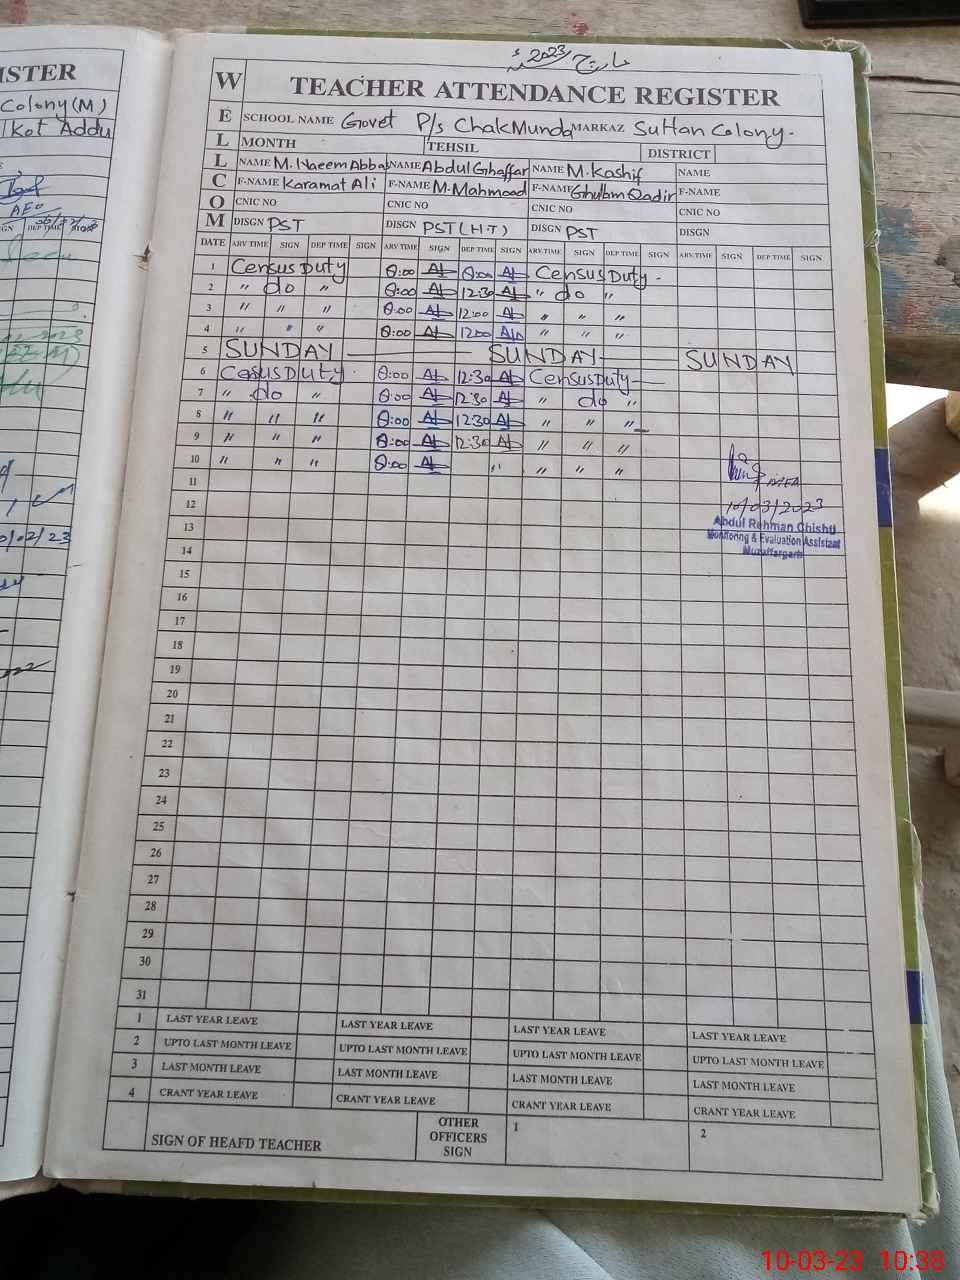 ISTER
Colony(M)
Kot Addu
مارچ 2023ء
WELLCOM
TEACHER ATTENDANCE REGISTER
SCHOOL NAME Govet P/s ChakMunda MARKAZ Sultan Colony.
MONTH TEHSIL DISTRICT
NAME M.Naeem Abbas NAME Abdul Ghaffar NAME M.Kashif NAME
F-NAME Karamat Ali F-NAME M.Mahmood F-NAME Ghulam Qadir F-NAME
CNIC NO CNIC NO CNIC NO CNIC NO
DISGN PST DISGN PST(H.T) DISGN PST DISGN
DATE ARV TIME SIGN DEP TIME SIGN ARV TIME SIGN DEP TIME SIGN ARV.TIME SIGN DEP TIME SIGN ARV.TIME SIGN DEP TIME SIGN
1 Census Duty 8:00 8:00 Census Duty -
2 " do " 8:00 12:30 " do "
3 " " " 8:00 12:00 " " "
4 " " " 8:00 1200 " " "
5 SUNDAY SUNDAY SUNDAY
6 Cesus Duty 8:00 12:30 Census Duty
7 " do " 8:00 12:30 " do "
8 " " " 8:00 12:30 " " "
9 " " " 8:00 12:30 " " "
10 " " " 8:00 " " " "
MEA
11
12 10/03/2023
13 Abdul Rehman Chishti
Monitoring & Evaluation Assistant
14 Muzaffargarh
15
16
17
18
19
20
21
22
23
24
25
26
27
28
29
30
31
1 LAST YEAR LEAVE LAST YEAR LEAVE LAST YEAR LEAVE LAST YEAR LEAVE
2 UPTO LAST MONTH LEAVE UPTO LAST MONTH LEAVE UPTO LAST MONTH LEAVE UPTO LAST MONTH LEAVE
3 LAST MONTH LEAVE LAST MONTH LEAVE LAST MONTH LEAVE LAST MONTH LEAVE
4 CRANT YEAR LEAVE CRANT YEAR LEAVE CRANT YEAR LEAVE CRANT YEAR LEAVE
SIGN OF HEAFD TEACHER OTHER OFFICERS SIGN 1 2
10-03-23 10:38